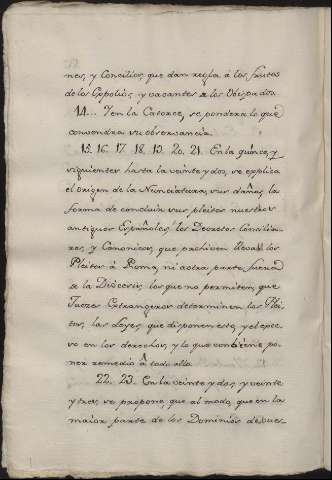 nes, y Concilios, que dan regla á los frutos
de los Espolios, y vacantes de los Obispados.
14... Y en la Catorce, se pondera lo que
convendra su observancia.
15. 16. 17. 18. 19. 20. 21. En la quince, y
siguientes hasta la veinte y dos, se explica
el origen de la Nunciatura, sus daños, la
forma de concluir sus pleitos nuestros
antiguos Españoles, los Decretos Concilia-
res, y Canonicos, que prohiven llevar los
Pleitos á Roma, ni á otra parte fuera
de la Diócesis, los que no permiten, que
Juezes Extrangeros determinen los Plei-
tos, las Leyes, que disponen esto, y el exce-
so en los derechos, y lo que conbiene po-
ner remedio á todo ello.
22. 23. En la veinte y dos, y veinte
y tres, se propone, que al modo, que en la
maior parte de los Dominios de vues-